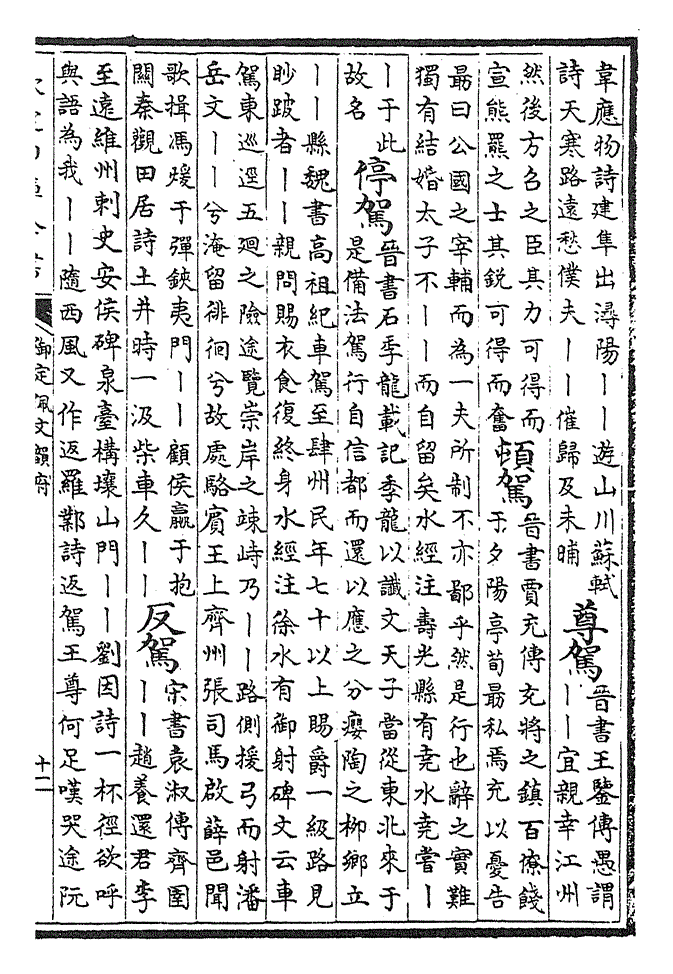 韋應物詩建隼出潯陽丨丨遊山川蘇軾
詩天寒路遠愁僕夫丨丨催歸及未晡
尊駕
晉書王鑒傳愚謂
丨丨宜親幸江州
然後方召之臣其力可得而
宣熊羆之士其銳可得而奮
頓駕
晉書賈充傳充將之鎮百僚餞
于夕陽亭荀最私焉充以憂告
最曰公國之宰輔而為一夫所制不亦鄙乎然是行也辭之實難
獨有結婚太子不丨丨而自留矣水經注壽光縣有堯水堯嘗丨
丨于此
故名
停駕
晉書石季龍載記季龍以讖文天子當從東北來于
是備法駕行自信都而還以應之分癭陶之柳鄉立
丨丨縣魏書高祖紀車駕至肆州民年七十以上賜爵一級路見
眇跛者丨丨親問賜衣食復終身水經注徐水有御射碑文云車
駕東巡逕五廻之險途覽崇岸之竦峙乃丨丨路側援弓而射潘
岳文丨丨兮淹留徘徊兮故處駱賓王上齊州張司馬啟薛邑聞
歌揖馮煖于彈鋏夷門丨丨顧侯嬴于抱
關秦觀田居詩土井時一汲柴車久丨丨
反駕
宋書袁淑傳齊圉
丨丨趙養還君李
至遠維州刺史安侯碑泉臺構壤山門丨丨劉因詩一杯徑欲呼
與語為我丨丨隨西風又作返羅鄴詩返駕王尊何足嘆哭途阮
御定佩文韻府
十二